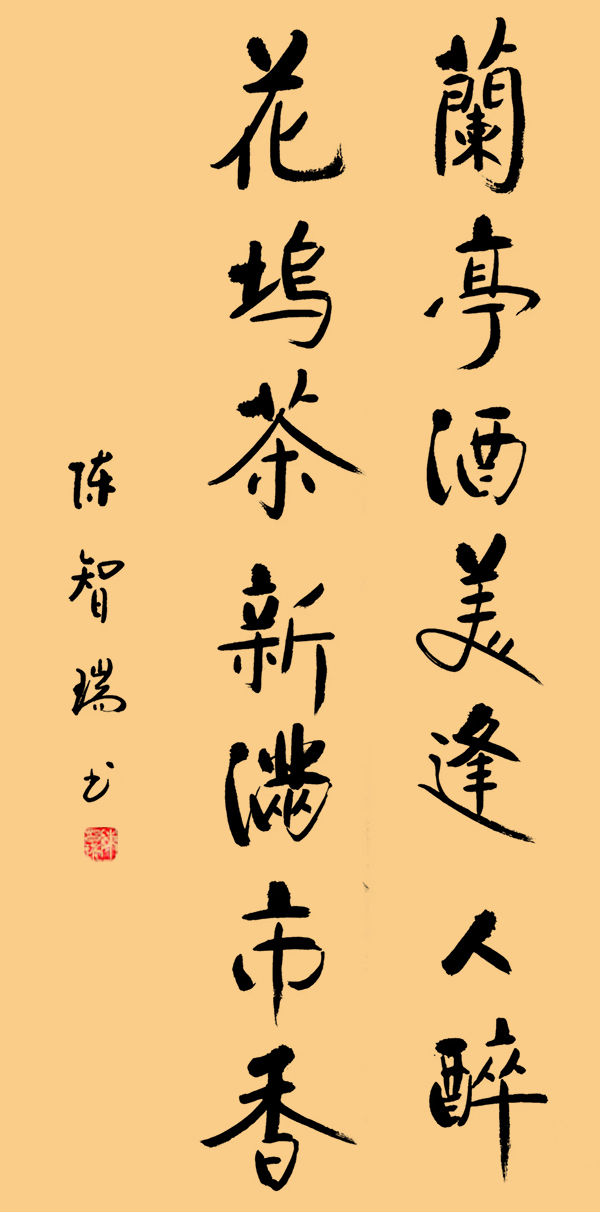 蘭亭酒美逢人醉
花塢茶新滿市香
陈智瑞书